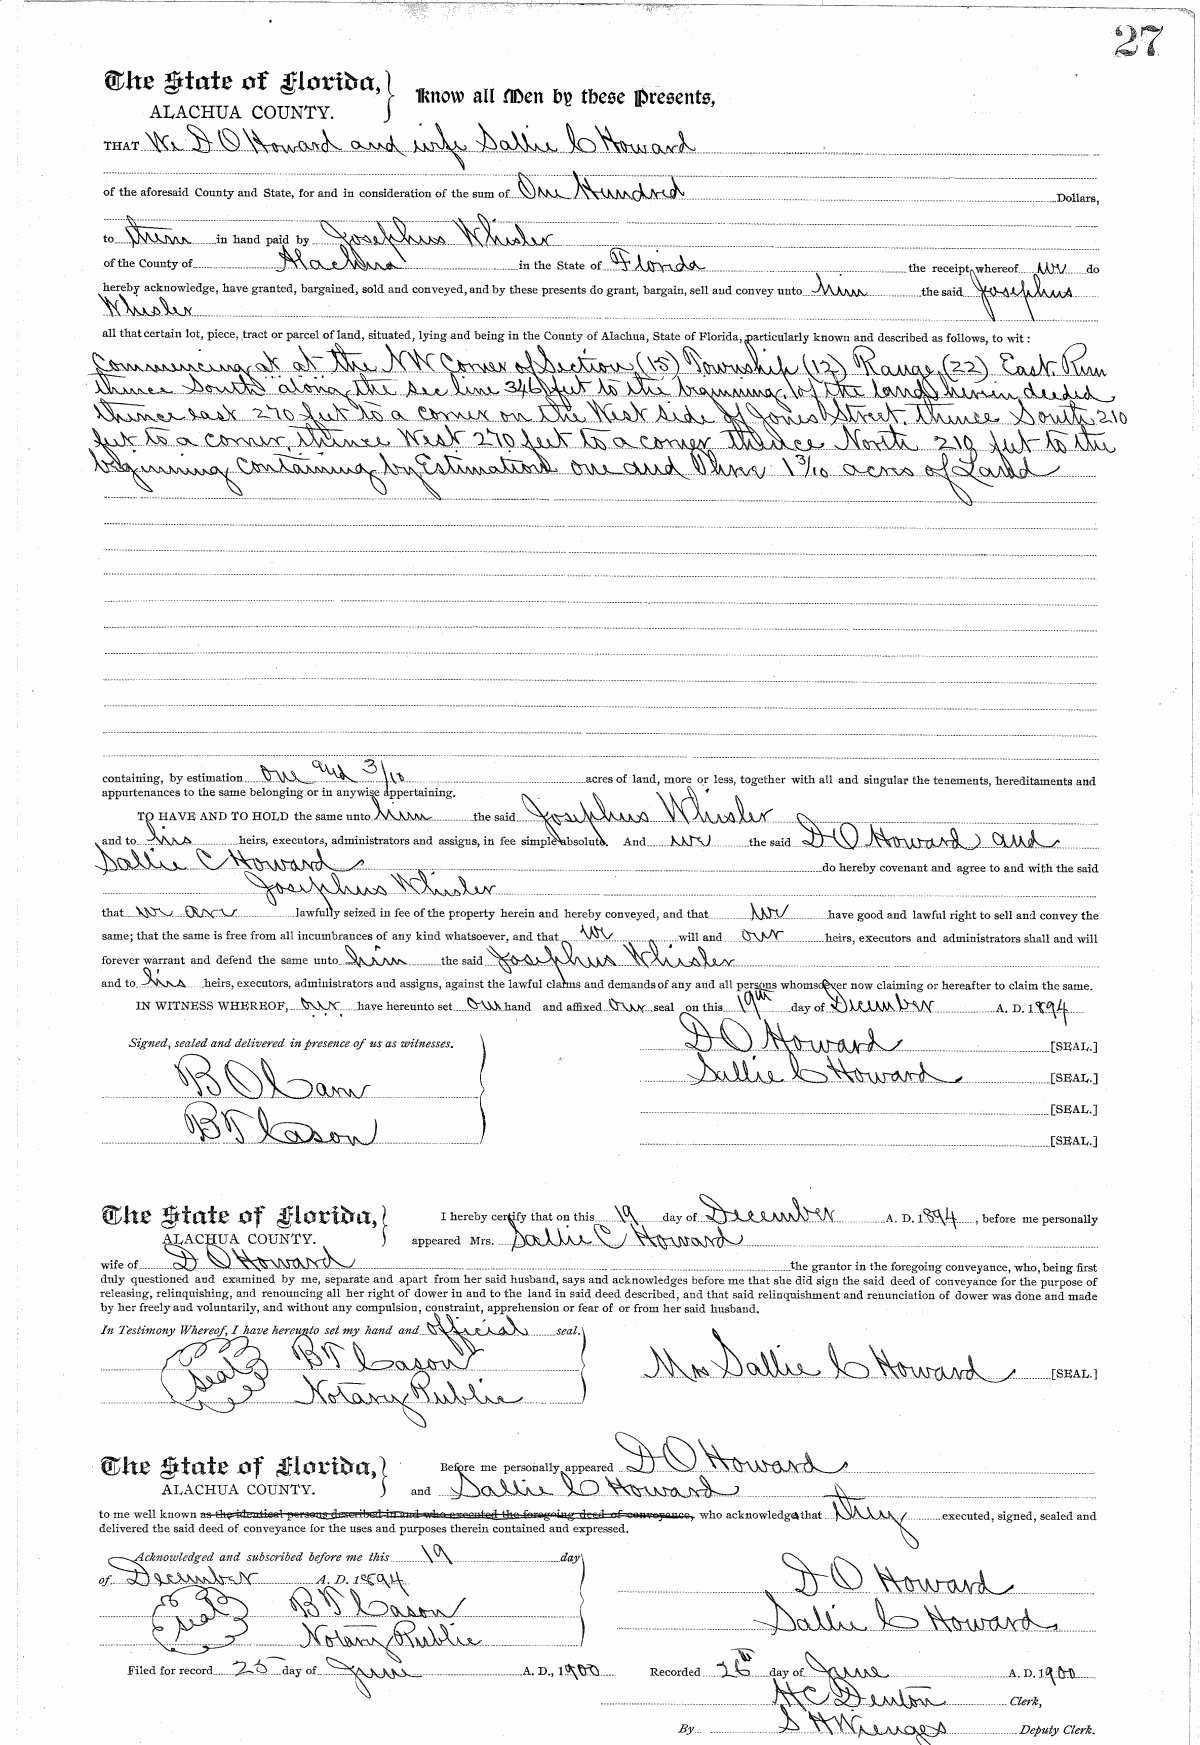 27
The State of Florida, } Know all Men by these Presents,
ALACHUA COUNTY.
THAT We D O Howard and wife Sallie C Howard
of the aforesaid County and State, for and in consideration of the sum of One Hundred Dollars,
to them in hand paid by Josephus Whisler
of the County of Alachua in the State of Florida the receipt whereof we do
hereby acknowledge, have granted, bargained, sold and conveyed, and by these presents do grant, bargain, sell and convey unto him the said Josephus
Whisler
all that certain lot, piece, tract or parcel of land, situated, lying and being in the County of Alachua, State of Florida, particularly known and described as follows, to wit:
Commencing at at the NW Corner of Section (15) Township (12) Range (22) East. Run
thence South along the sec line 346 feet to the beginning of the land herein deeded
thence east 270 feet to a corner on the West side of Jones Street. thence South 210
feet to a corner, thence West 270 feet to a corner thence North 210 feet to the
beginning containing by Estimation one and 1 3/10 acres of Land
containing, by estimation one and 3/10 acres of land, more or less, together with all and singular the tenements, hereditaments and
appurtenances to the same belonging or in anywise appertaining.
TO HAVE AND TO HOLD the same unto him the said Josephus Whisler
and to his heirs, executors, administrators and assigns, in fee simple absolute. And we the said D O Howard and
Sallie C Howard do hereby covenant and agree to and with the said
Josephus Whisler
that we are lawfully seized in fee of the property herein and hereby conveyed, and that we have good and lawful right to sell and convey the
same; that the same is free from all incumbrances of any kind whatsoever, and that we will and our heirs, executors and administrators shall and will
forever warrant and defend the same unto him the said Josephus Whisler
and to his heirs, executors, administrators and assigns, against the lawful claims and demands of any and all persons whomsoever now claiming or hereafter to claim the same.
IN WITNESS WHEREOF, our have hereunto set our hand and affixed our seal on this 19th day of December A. D. 1894
Signed, sealed and delivered in presence of us as witnesses. D O Howard [SEAL.]
B O Cam Sallie C Howard [SEAL.]
[SEAL.]
B T Cason [SEAL.]
The State of Florida, } I hereby certify that on this 19 day of December A. D. 1894, before me personally
ALACHUA COUNTY. appeared Mrs. Sallie C Howard
wife of D O Howard the grantor in the foregoing conveyance, who, being first
duly questioned and examined by me, separate and apart from her said husband, says and acknowledges before me that she did sign the said deed of conveyance for the purpose of
releasing, relinquishing, and renouncing all her right of dower in and to the land in said deed described, and that said relinquishment and renunciation of dower was done and made
by her freely and voluntarily, and without any compulsion, constraint, apprehension or fear of or from her said husband.
In Testimony Whereof, I have hereunto set my hand and official seal.
seal B T Cason Mrs Sallie C Howard [SEAL.]
Notary Public
The State of Florida, } Before me personally appeared D O Howard
ALACHUA COUNTY. and Sallie C Howard
to me well known as the identical persons described in and who executed the foregoing deed of conveyance, who acknowledge that they executed, signed, sealed and
delivered the said deed of conveyance for the uses and purposes therein contained and expressed.
Acknowledged and subscribed before me this 19 day
of December A. D. 1894 D O Howard
seal B T Cason Sallie C Howard
Notary Public
Filed for record 25 day of June A. D., 1900 Recorded 26th day of June A. D. 1900
H C Denton Clerk,
By S H Wienges Deputy Clerk.